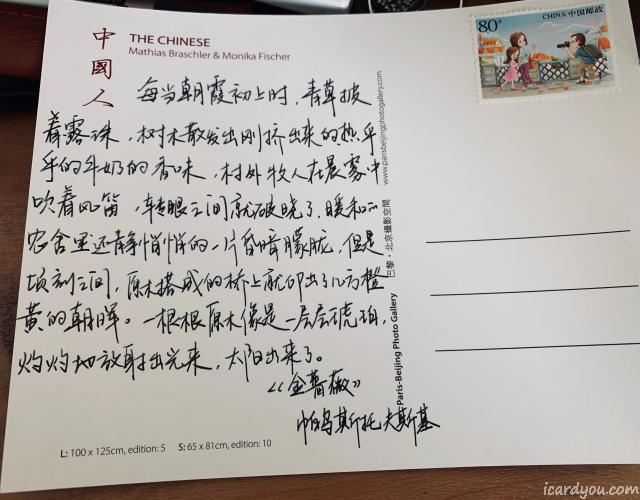 中國人
THE CHINESE
Mathias Braschler & Monika Fischer
80分
CHINA 中国邮政
每当朝霞初上时，青草披
着露珠，树木散发出刚挤出来的热乎
乎的牛奶的香味，村外牧人在晨雾中
吹着风笛，转眼之间就破晓了，暖和的
农舍里还静悄悄的一片昏暗朦胧，但是
顷刻之间，原木搭成的桥上就印出了几方橙
黄的朝晖。一根根原木像是一层层琥珀，
灼灼地放射出光来，太阳出来了。
《金蔷薇》
帕乌斯托夫斯基
Paris-Beijing Photo Gallery 巴黎·北京攝影空間 www.parisbeijingphotogallery.com
L: 100 x 125cm, edition: 5 S: 65 x 81cm, edition: 10
icardyou.com